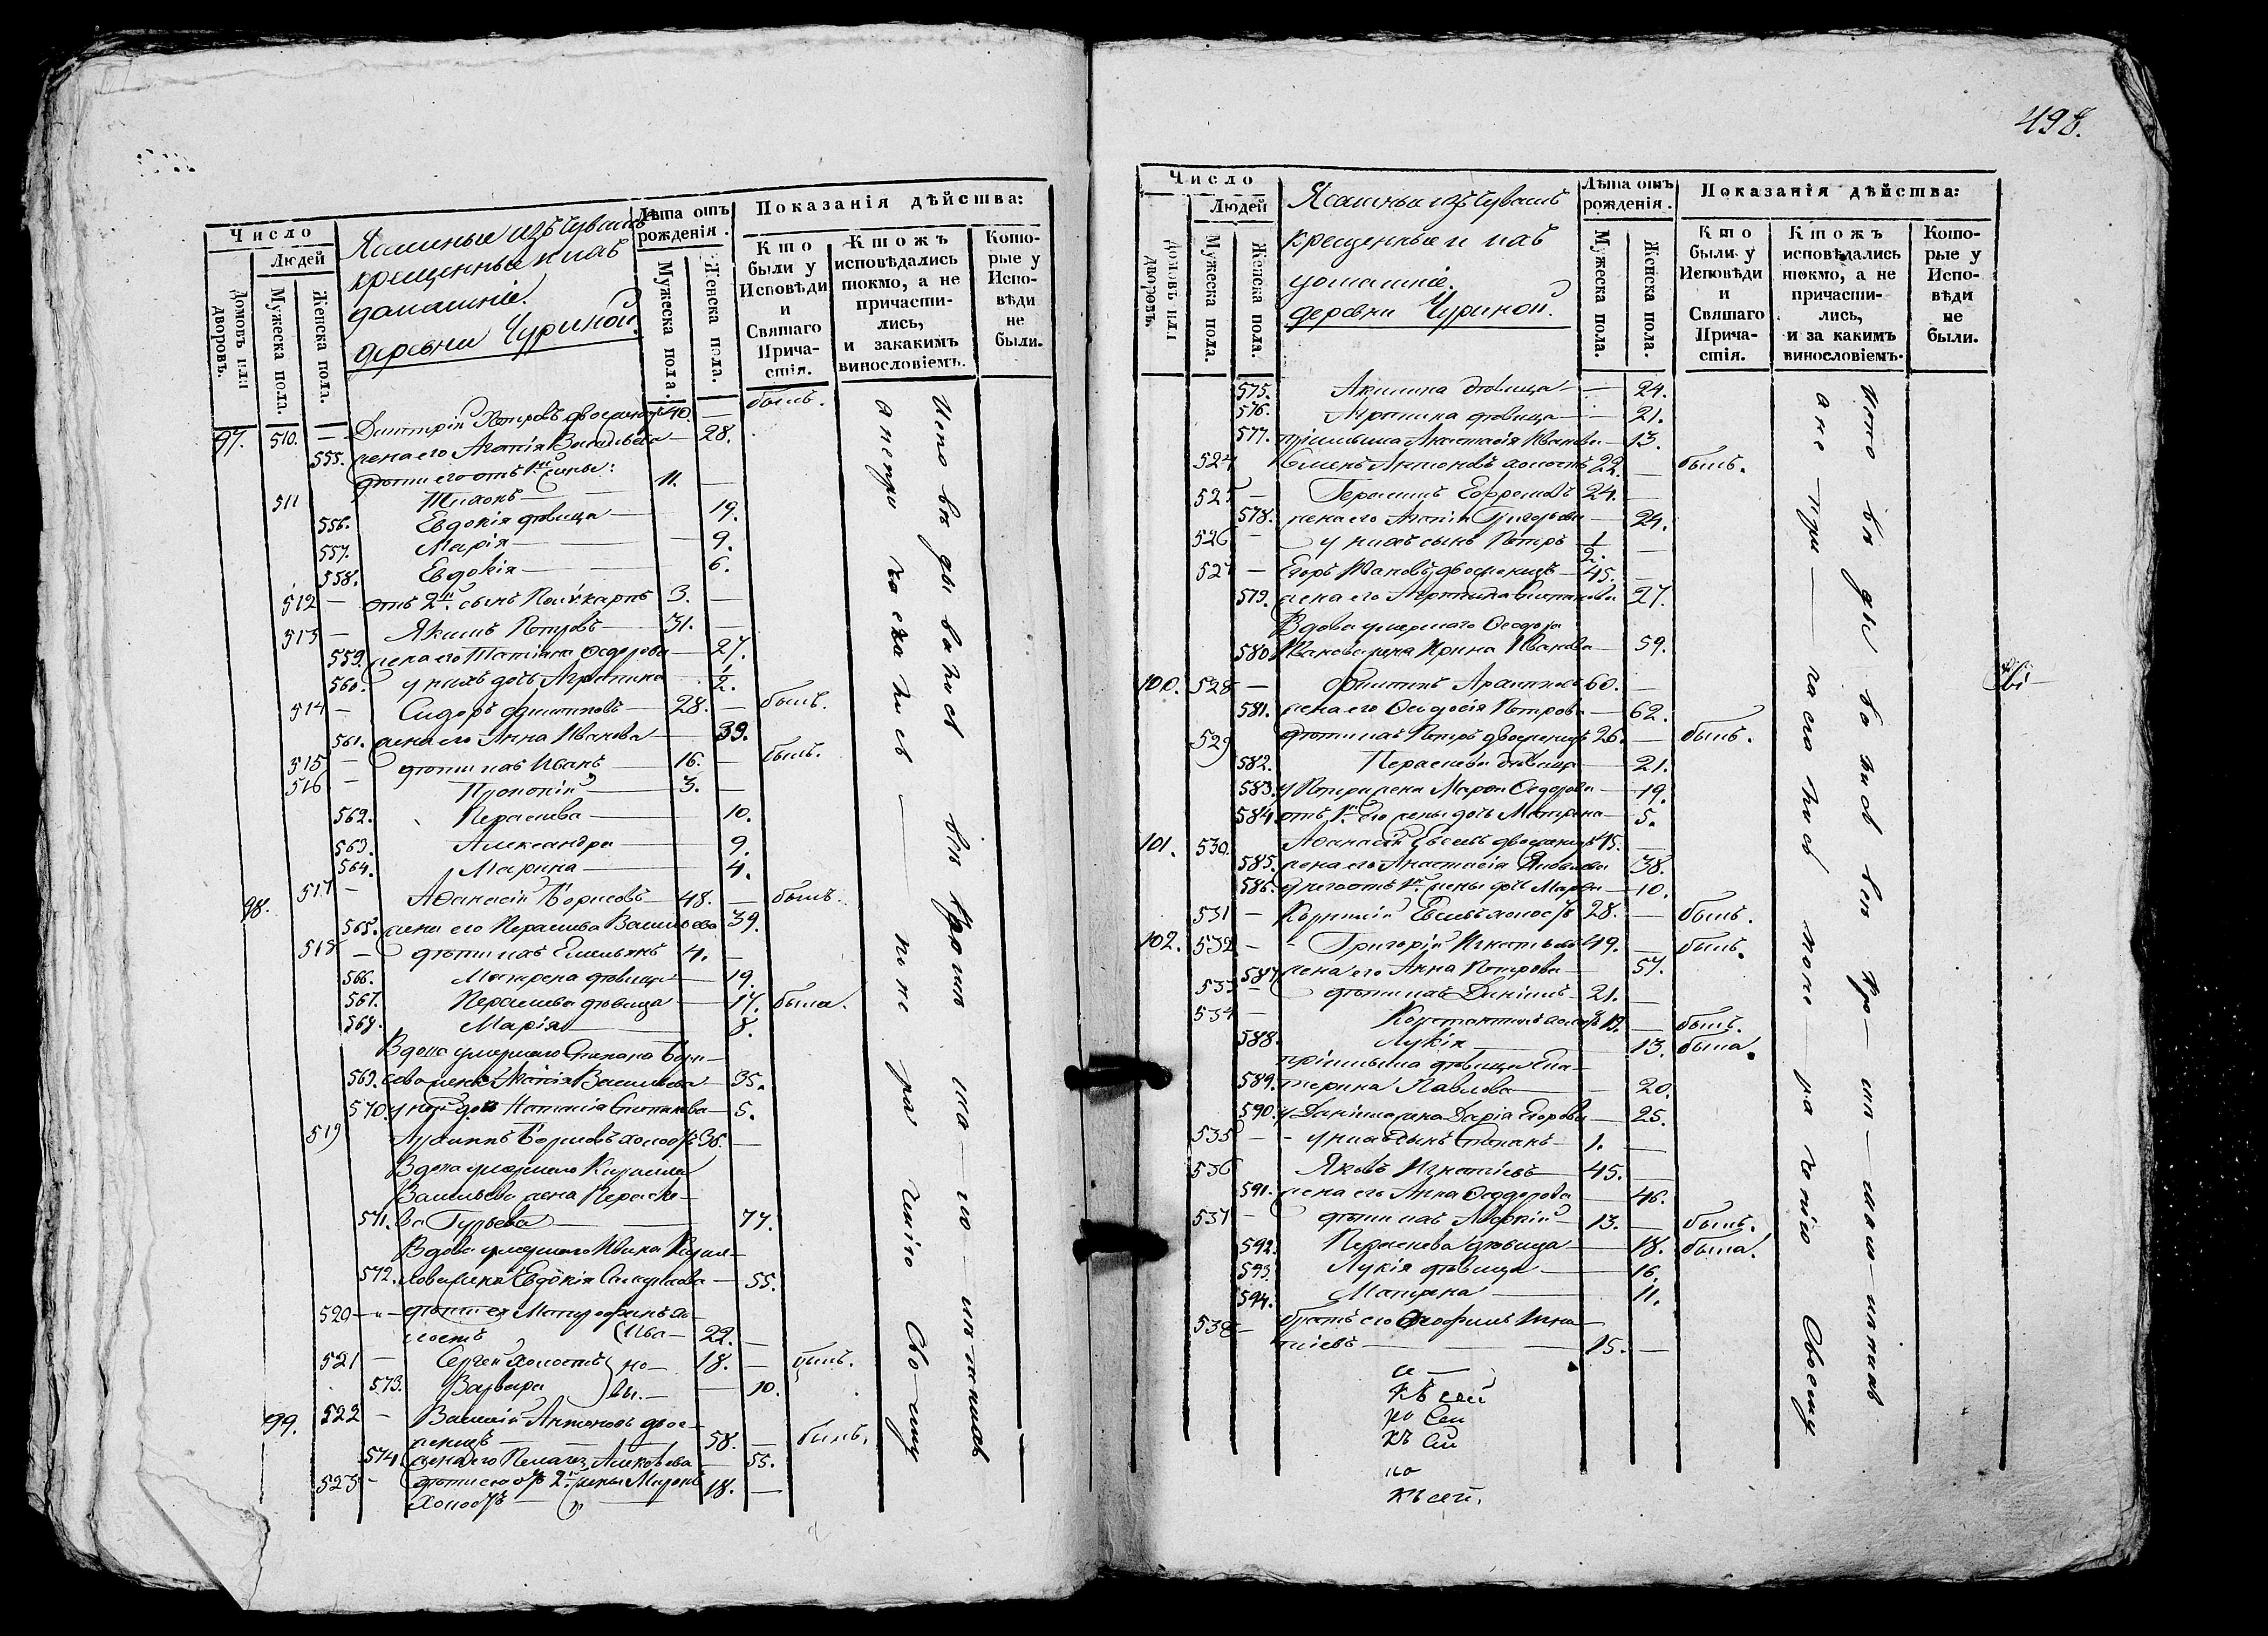 498.
Число
Людей
Домовъ или дворовъ.
Мужеска пола.
Женска пола.
Ясашные изъ Чувашъ
крещенные и ихъ
домашніе.
деревни Чуриной.
Лѣта отъ рожденія.
Мужеска пола.
Женска пола.
Показанія дѣйства:
Кто были у Исповѣди и Святаго Прича-стія.
Ктожъ исповѣдались токмо, а не причасти-лись, и закакимъ винословіемъ.
Кото-рые у Испо-вѣди не были.
97. 510. — Димитрій Петровъ двоеженецъ 40. — былъ.
555. жена его Агапія Васильева — 28.
дѣти его отъ 1й жены:
511 Тихонъ 11. —
556. Евдокія дѣвица — 19.
557. Марія — 9.
558. Евдокія — 6.
512 — отъ 2й сынъ Поликарпъ 3. —
513 — Якимъ Петровъ 31. —
559. жена его Татіана Ѳедорова — 27.
560. у нихъ дочь Агрипина 1/2.
514 — Сидоръ 28. — былъ.
561. жена его Анна Иванова — 39.
515 — дѣти ихъ Иванъ 16. — былъ.
516 — Прокопій 3. —
562. Параскева 10.
563. Александра 9.
564. Марина 4.
98. 517 — Аѳанасій Борисовъ 48. — былъ.
565. жена его Параскева Васильева 39.
518 — дѣти ихъ Емельянъ 4. —
566. Матрена дѣвица 19.
567. Параскева дѣвица 17. была.
568. Марія 8.
Вдова умершаго Степана Бори-
569. сова жена Васильева 35.
570. у ней дочь Наталія Степанова 5.
519 Борисовъ холостъ 36. —
Вдова умершаго Кирилла
Васильева жена Параске-
571. ва Гурьева 77.
Вдова умершаго Ивана Кирил-
572. лова жена Евдокія 55.
520 — дѣти ея Митрофанъ хо-
лостъ (Ива- 22. —
521 — Сергей холостъ но- 18. — былъ.
573. Варвара вы. — 10.
99. 522 — Василій Антоновъ двое-
женецъ 58. — былъ.
574. жена его Пелагея 55.
523 — дѣти его отъ 2й жены Миронъ
холостъ 18. —
Исповѣдывались въ Кро
а не причастились по нераченію своему
Число
Людей
Домовъ или дворовъ.
Мужеска пола.
Женска пола.
Ясашные изъ Чувашъ
крещенные и ихъ
домашніе.
деревни Чуриной.
Лѣта отъ рожденія.
Мужеска пола.
Женска пола.
Показанія дѣйства:
Кто были у Исповѣди и Святаго Прича-стія.
Ктожъ исповѣдались токмо, а не причасти-лись, и за какимъ винословіемъ.
Кото-рые у Испо-вѣди не были.
575. Акилина дѣвица — 24.
576. Агрипина дѣвица — 21.
577. пріимыша Анастасія Иванова — 13.
524 Семенъ Антоновъ холостъ 22. — былъ.
525 — Герасимъ Ефремовъ 24. —
578. жена его Агапія Григорьева — 24.
526 — у нихъ сынъ Петръ 1/2. —
527 — Егоръ Ивановъ двоеженецъ 45. —
579. жена его Агрипина Степанова 27.
Вдова умершаго Ѳеодора
580. Иванова жена Ирина Иванова 59.
100. 528 — 60. —
581. жена его Ѳеодосія Петрова — 62.
529 дѣти ихъ Петръ двоеженецъ 26. — былъ.
582. Параскева дѣвица 21.
583. у Петра жена Марѳа Ѳедорова 19.
584. отъ 1й его жены дочь Матрена 5.
101. 530. Аѳанасій Евсевъ двоеженецъ 45. —
585. жена его Анастасія Яковлева 38.
586. у него отъ 1й жены дочь Марѳа — 10.
531 — Корнилій Евсевъ холостъ 28. — былъ.
102. 532 — Григорій Игнатьевъ 49. — былъ.
587. жена его Анна Петрова 57.
533 — дѣти ихъ Даніилъ 21. —
534 — Константинъ холостъ 19. — былъ.
588. Лукія 13. была.
пріимыша дѣвица Ека-
589. терина Павлова — 20.
590. у Даніила жена Дарія Егорова 25.
535 — у нихъ сынъ Степанъ 1. —
536 Яковъ Игнатіевъ 45. —
591. жена его Анна Ѳеодорова 46.
537 — дѣти ихъ 13. — былъ.
592. Параскева дѣвица 18. была.
593. Лукія дѣвица 16.
594. Матрена 11.
538 — братъ его Ѳеофилъ Игна-
тіевъ 15. —
Исповѣдывались въ Кро
а не причастились по нераченію своему